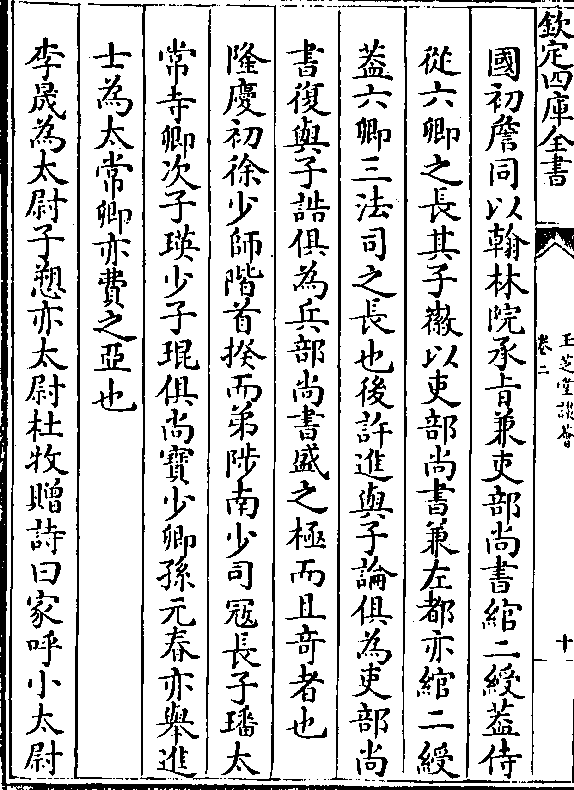 欽定四庫全書
玉芝堂談薈
卷二
十
國初詹同以翰林院承旨兼吏部尚書綰二綬葢侍
從六卿之長其子徽以吏部尚書兼左都亦綰二綬
葢六卿三法司之長也後許進與子論俱為吏部尚
書復與子誥俱為兵部尚書盛之極而且竒者也
隆慶初徐少師階首揆而弟陟南少司冦長子璠太
常寺卿次子瑛少子琨俱尚寶少卿孫元春亦舉進
士為太常卿亦費之亞也
李晟為太尉子愬亦太尉杜牧贈詩曰家呼小太尉